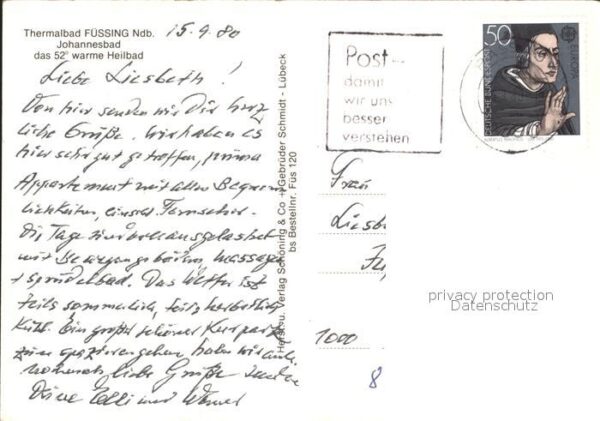 Thermalbad FÜSSING Ndb.
Johannesbad
das 52° warme Heilbad
15.9.80
Liebe Liesbeth!
Von hier senden wir Dir herz
liche Grüße. Wir haben es
hier sehr gut getroffen, prima
Appartement mit allen Bequem
lichkeiten, einschl. Fernseher.
Die Tage sind voll ausgelastet
mit Bewegungsbädern, Massagen
+ Sprudelbad. Das Wetter ist
teils sommerlich, teils herbstlich
kühl. Ein großer schöner Kurpark
zum spazierengehen haben wir auch.
nochmals liebe Grüße senden
Deine und Werner
Herst. u. Verlag Schöning & Co + Gebrüder Schmidt - Lübeck
bs Bestellnr. Füs 120
Post -
damit
wir uns
besser
verstehen
50
DEUTSCHE BUNDESPOST
EUROPA
Frau
Liesbe
1000
8
privacy protection
Datenschutz